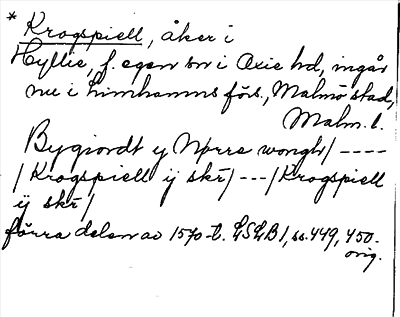 * Krogspiell, åker i
Hyllie, f. egen sn i Oxie hd, ingår
nu i Limhamns förs., Malmö stad,
Malm. l.
Bygiordt y Nørre wongh/ ----
/Krogspiell ij skr/ --- /Krogspiell
ij skr/
förra delen av 1570-t. LSLB 1, ss. 449, 450.
orig.